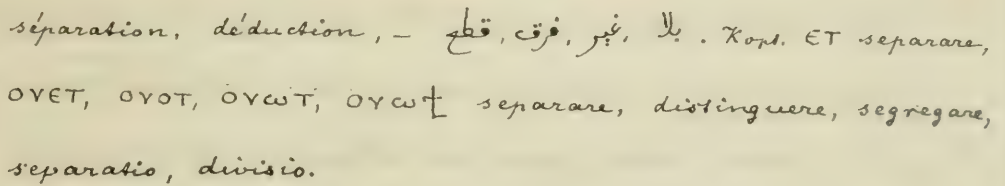 séparation, déduction, – قطع, فرق, غير, بلا. Kopt. ⲈⲦ separare,
ⲞⲨⲈⲦ, ⲞⲨⲞⲦ, ⲞⲨⲰⲦ, ⲞⲨⲰϮ separare, distinguere, segregare,
separatio, divisio.